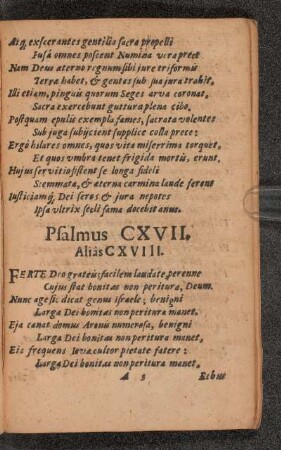 Atq; exsecrantes gentilia sacra propelli
Fusâ omnes poscent Numina vera prece
Nam Deus aterno regnum sibi jure triformis
Terræ habet, & gentes sub sua jura trahit,
Illi etiam, pinguis quorum Seges arva coronat,
Sacra exercebunt guttura plena cibo,
Postquam epulis exempla fames, sacrata volentes
Sub juga subijcient supplice colla prece:
Ergò hilares omnes, quos vita miserrima torquet,
Et quos vmbra tenet frigida mortis, erunt,
Hujus servitio sistent se longa fideli
Stemmata, & æterna carmina laude ferent
Iusticiamq; Dei seros & jura nepotes
Ipsa vltrix secli fama docebit anus.
Psalmus CXVII.
Aliàs CXVIII.
FERTE Deo grates: facilem laudate perenne
Cujus stat bonitas non peritura, Deum.
Nunc age si: dicat genus Israele; benigni
Larga Dei bonitas non peritura manet.
Eja canat domus Aronis numerosa, benigni
Larga Dei bonitas non peritura manet,
Eis frequens Iovæ cultor pietate fatere:
Larga Dei bonitas non peritura manet,
A 3 Rebus